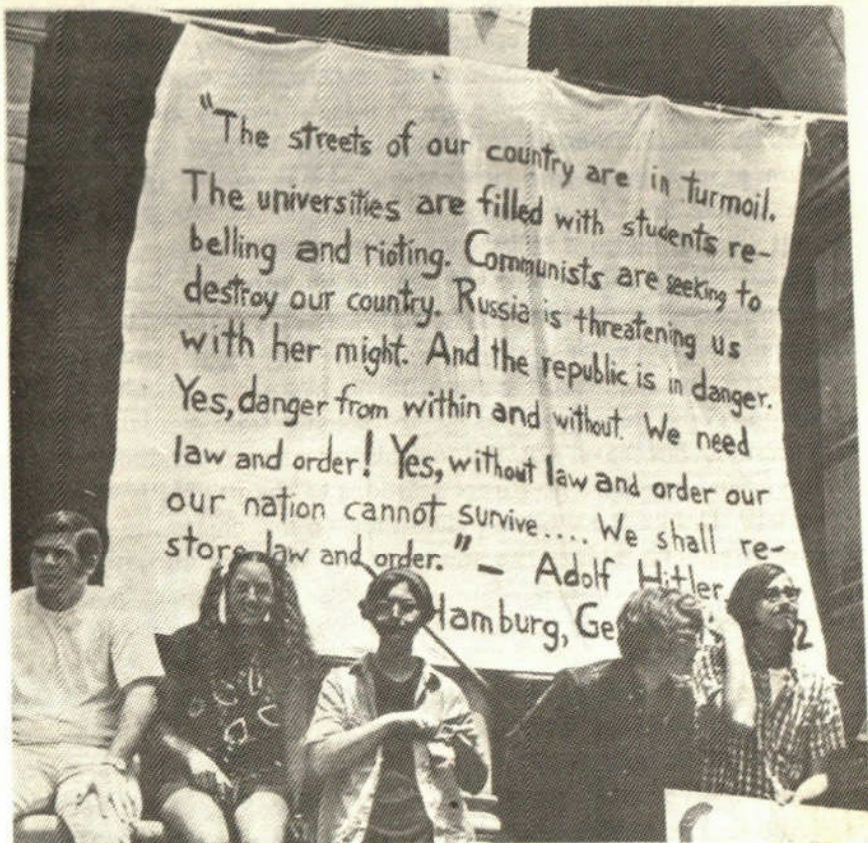 "The streets of our country are in turmoil.
The universities are filled with students re-
belling and rioting. Communists are seeking to
destroy our country. Russia is threatening us
with her might. And the republic is in danger.
Yes, danger from within and without. We need
law and order! Yes, without law and order our
our nation cannot survive.... We shall re-
store law and order." — Adolf Hitler
Hamburg, Ge 2